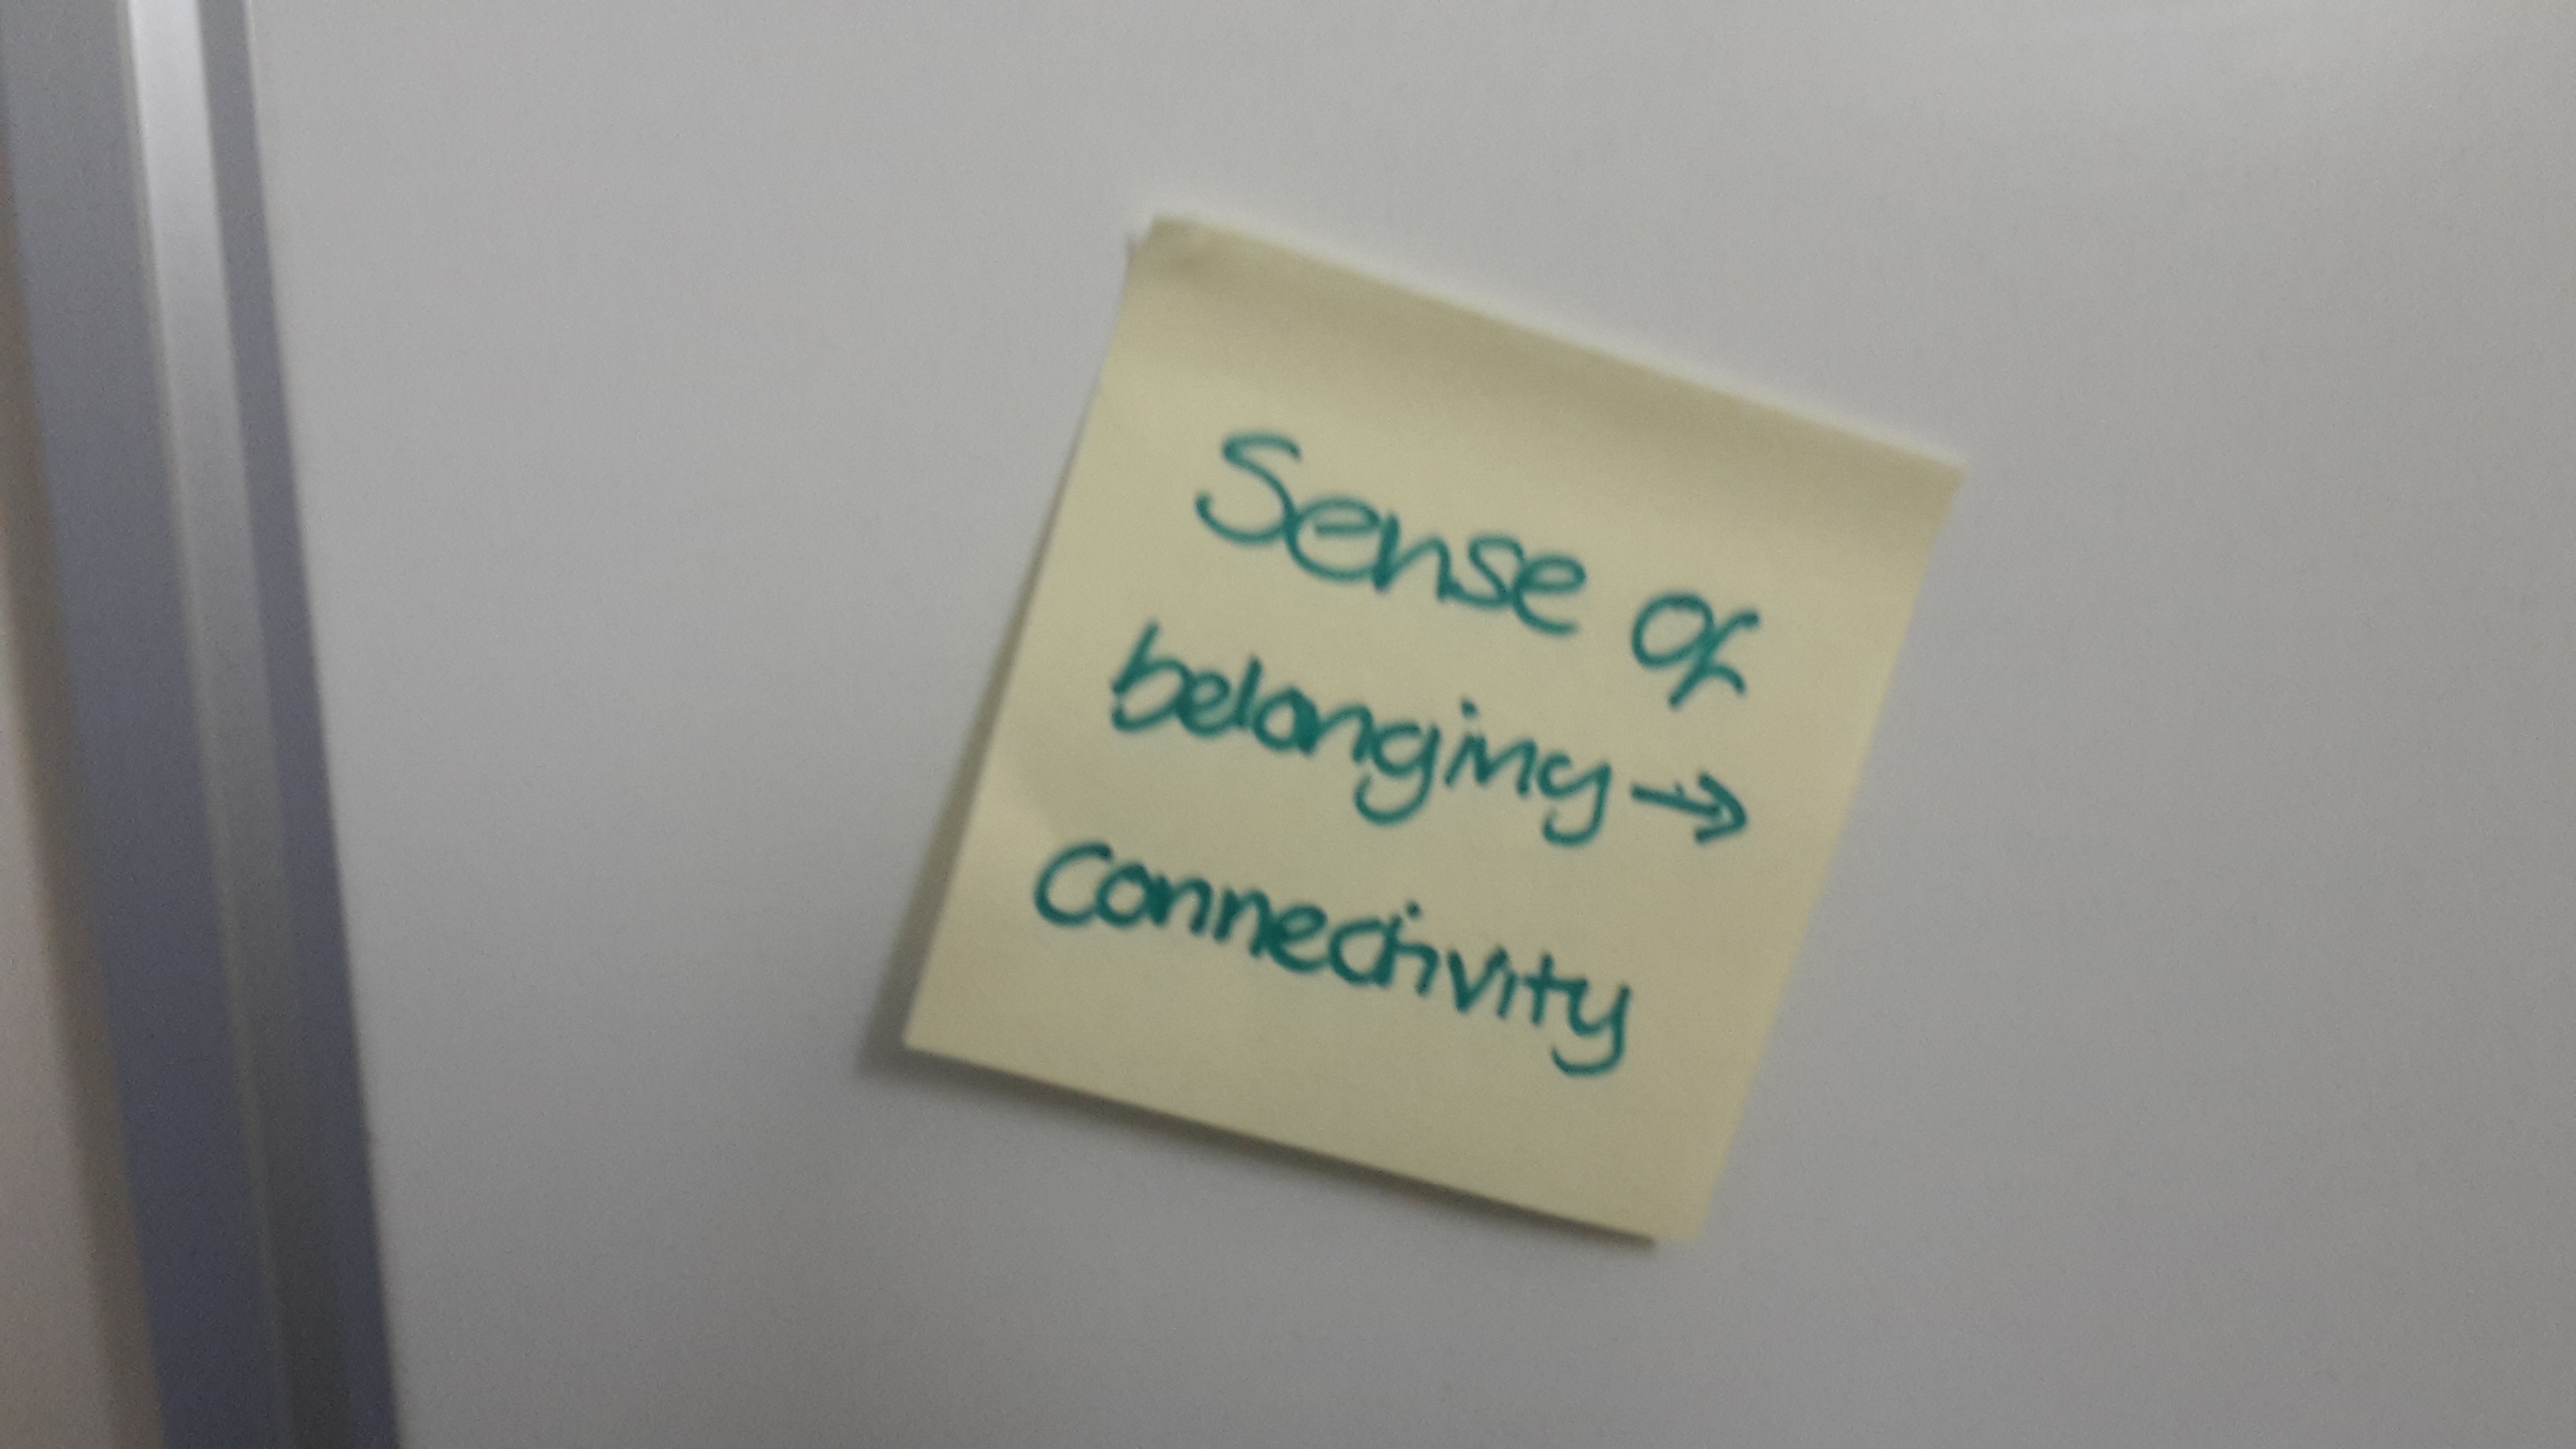 Sense of
belonging →
Connectivity